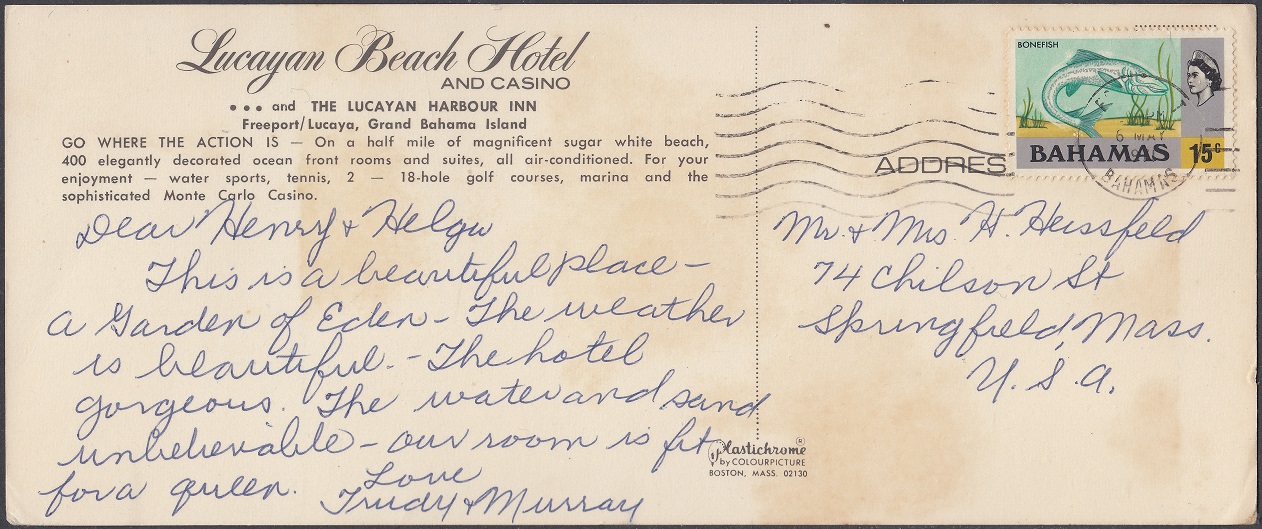 Lucayan Beach Hotel
AND CASINO
••• and THE LUCAYAN HARBOUR INN
Freeport/Lucaya, Grand Bahama Island
GO WHERE THE ACTION IS — On a half mile of magnificent sugar white beach,
400 elegantly decorated ocean front rooms and suites, all air-conditioned. For your
enjoyment — water sports, tennis, 2 — 18-hole golf courses, marina and the
sophisticated Monte Carlo Casino.
Dear Henry & Helga
This is a beautiful place -
a Garden of Eden - The weather
is beautiful - The hotel
gorgeous. The water and sand
unbelievable - our room is fit
for a queen.
Love
Trudy & Murray
Plastichrome ®
by COLOURPICTURE
BOSTON, MASS. 02130
BONEFISH
BAHAMAS 15c
6 MAY
BAHAMAS
ADDRES
Mr. & Mrs. H. Heissfeld
74 Chilson St
Springfield, Mass.
U.S.A.